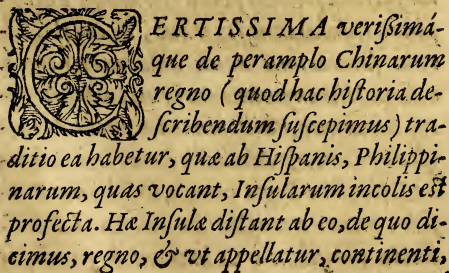 CERTISSIMA verißimá-
que de peramplo Chinarum
regno (quod hac hiſtoria de-
ſcribendum ſuſcepimus) tra-
ditio ea habetur, quæ ab Hiſpanis, Philippi-
narum, quas vocant, Inſularum incolis eſt
profecta. Hæ Inſulæ diſtant ab eo, de quo di-
cimus, regno, & vt appellatur, continenti,